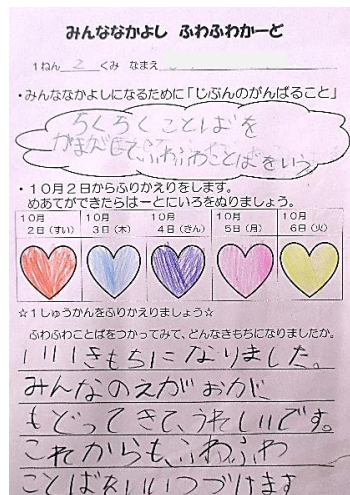 みんななかよし ふわふわかーど
1ねん 2 くみ なまえ
・みんななかよしになるために「じぶんのがんばること」
ちくちくことばを
ふわふわことばをいう
・10月2日からふりかえりをします。
めあてができたらはーとにいろをぬりましょう。
10月 10月 10月 10月 10月
2日(すい) 3日(木) 4日(きん) 5日(月) 6日(火)
☆1しゅうかんをふりかえりましょう☆
ふわふわことばをつかってみて、どんなきもちになりましたか。
いいきもちになりました。
みんなのえがおがに
もどってきて、うれしいです。
これからも、ふわふわ
ことばをいいつづけます